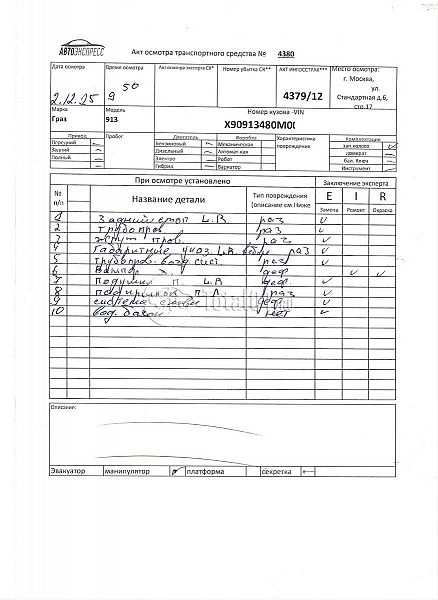 АВТОЭКСПРЕСС
Акт осмотра транспортного средства № 4380
Дата осмотра Время осмотра Акт осмотра эксперта СК* Номер убытка СК** АКТ ИНГОССТРАХ*** Место осмотра:
г. Москва,
ул.
Стандартная д.6,
стр.17
2.12.25 9 50 4379/12
Марка Модель Номер кузова -VIN
Граз 913 X90913480M0(
Привод Пробег Двигатель Коробка Характеристика повреждения Комплектация
Передний Бензиновый Механическая зап.колесо
Задний Дизельный Автомат-кая домкрат
Полный Электро Робот бал. Ключ
Гибрид Вариатор Инструмент
При осмотре установлено Заключение эксперта
№ п/п Название детали Тип повреждения (описание см.Ниже E I R
Замена Ремонт Окраска
1 Задний стоп L.R раз ✓
2 трубопров раз ✓
3 жгут пров. раз ✓
4 Габаритные указ. L.R раз ✓
5 трубопров. возд. сист. раз ✓
6 деф ✓ ✓
7 Подушка п. L.R деф. ✓
8 п.Л раз ✓
9 система деф. ✓
10 вод. бачок нет ✓
TotalO
Описание:
Эвакуатор манипулятор платформа секретка